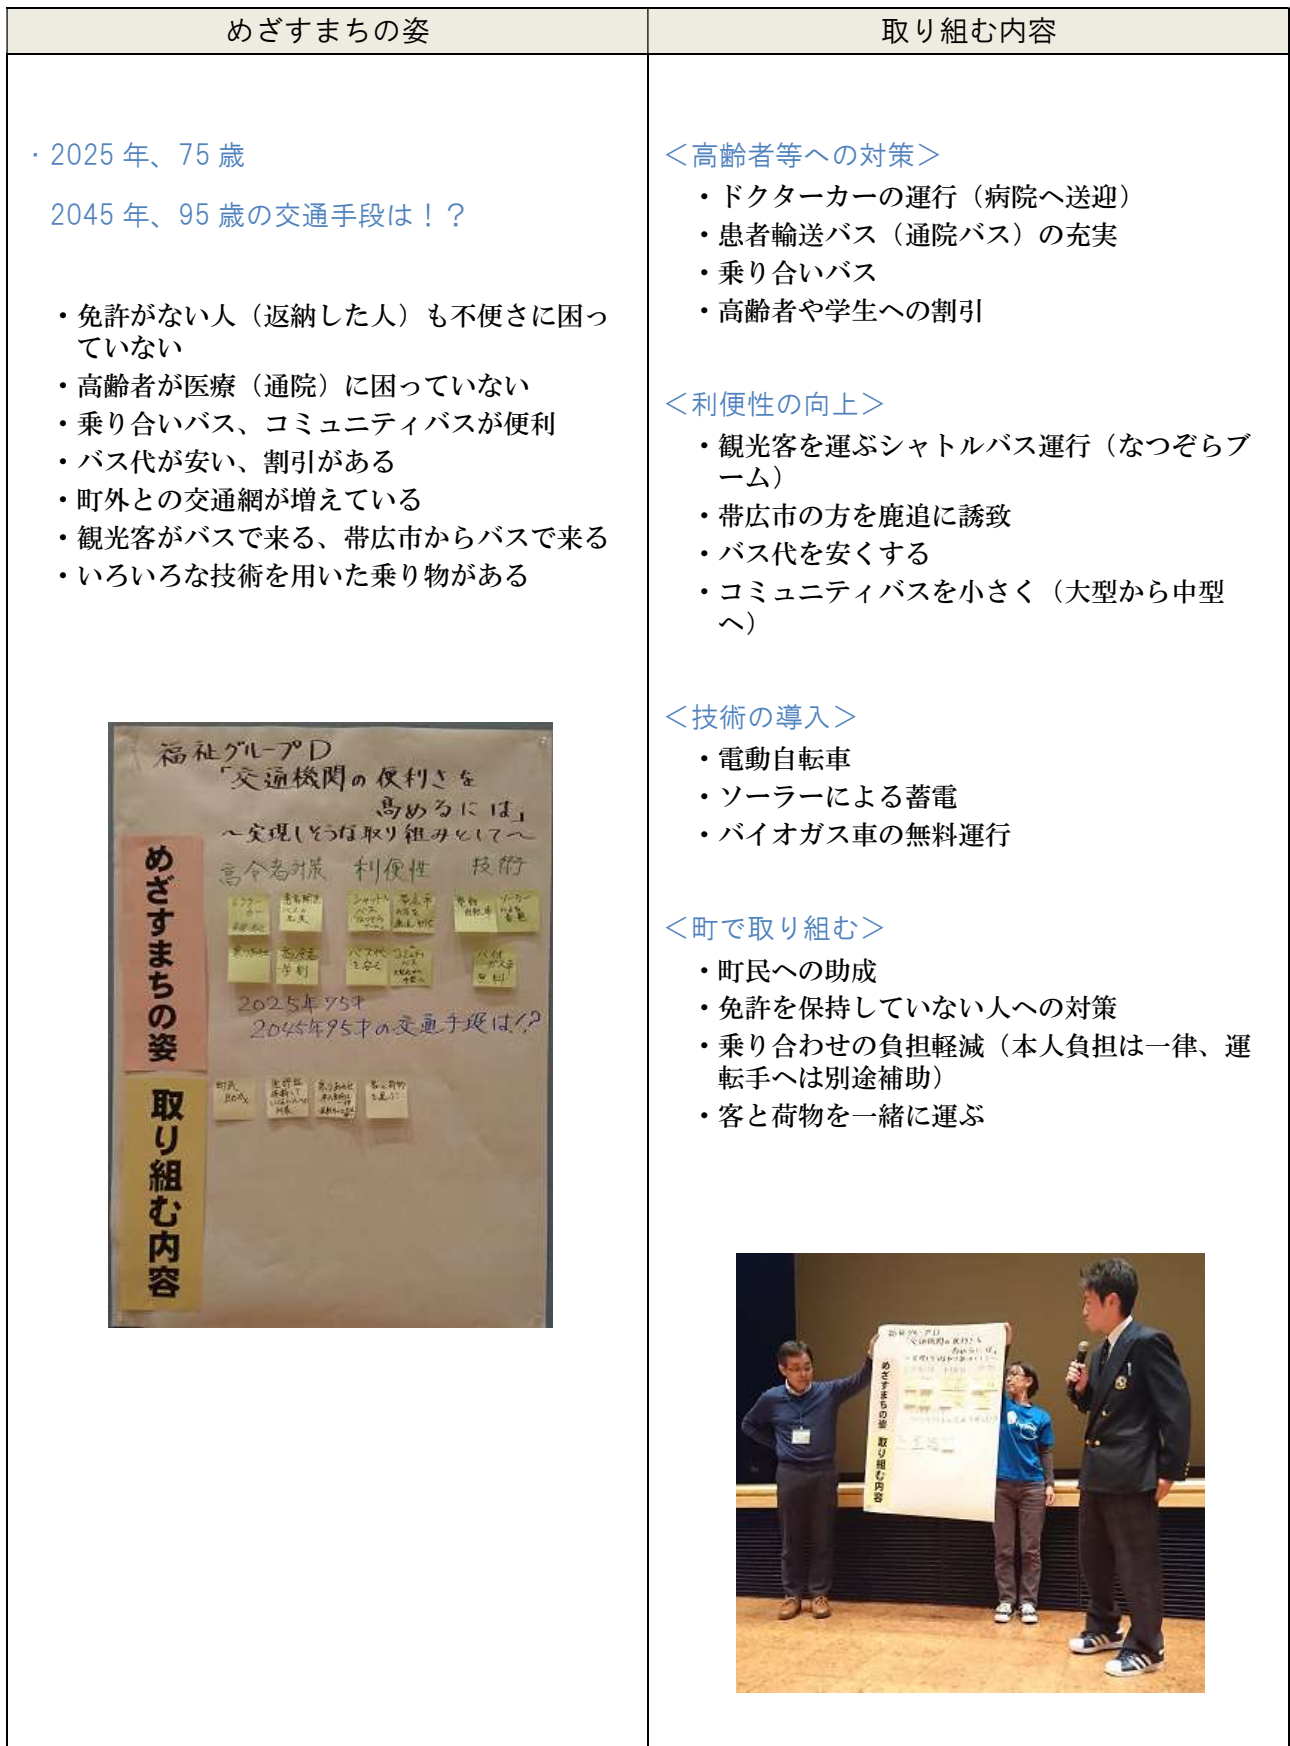 めざすまちの姿
取り組む内容
・2025年、75歳
2045年、95歳の交通手段は！？
・免許がない人（返納した人）も不便さに困っ
ていない
・高齢者が医療（通院）に困っていない
・乗り合いバス、コミュニティバスが便利
・バス代が安い、割引がある
・町外との交通網が増えている
・観光客がバスで来る、帯広市からバスで来る
・いろいろな技術を用いた乗り物がある
福祉グループD
「交通機関の便利さを
高めるには」
～実現しそうな取り組みとして～
めざすまちの姿
高令者対策 利便性 技術
バス代
を安く
2025年75才
2045年95才の交通手段は!?
取り組む内容
町民
助成
＜高齢者等への対策＞
・ドクターカーの運行（病院へ送迎）
・患者輸送バス（通院バス）の充実
・乗り合いバス
・高齢者や学生への割引
＜利便性の向上＞
・観光客を運ぶシャトルバス運行（なつぞらブ
ーム）
・帯広市の方を鹿追に誘致
・バス代を安くする
・コミュニティバスを小さく（大型から中型
へ）
＜技術の導入＞
・電動自転車
・ソーラーによる蓄電
・バイオガス車の無料運行
＜町で取り組む＞
・町民への助成
・免許を保持していない人への対策
・乗り合わせの負担軽減（本人負担は一律、運
転手へは別途補助）
・客と荷物を一緒に運ぶ
福祉グループD
「交通機関の便利さを
高めるには」
めざすまちの姿
取り組む内容